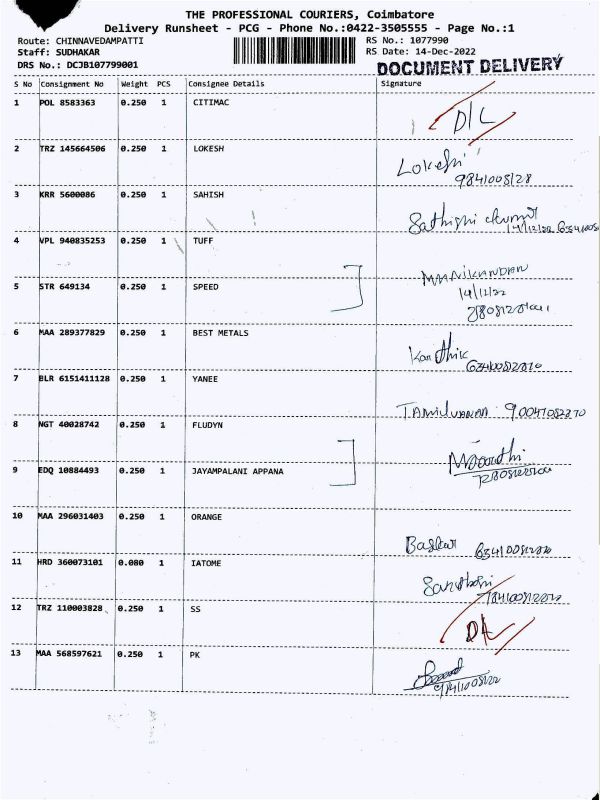 THE PROFESSIONAL COURIERS, Coimbatore
Delivery Runsheet - PCG - Phone No.:0422-3505555 - Page No.:1
Route: CHINNAVEDAMPATTI RS No.: 1077990
Staff: SUDHAKAR RS Date: 14-Dec-2022
DRS No.: DCJB107799001 DOCUMENT DELIVERY
S No Consignment No Weight PCS Consignee Details Signature
1 POL 8583363 0.250 1 CITIMAC D/C
2 TRZ 145664506 0.250 1 LOKESH
9841008128
3 KRR 5600086 0.250 1 SAHISH
14/12/22
4 VPL 940835253 0.250 1 TUFF
MANIKANDAN
14/12/22
5 STR 649134 0.250 1 SPEED
6 MAA 289377829 0.250 1 BEST METALS
Karthik
7 BLR 6151411128 0.250 1 YANEE
8 NGT 40028742 0.250 1 FLUDYN
9 EDQ 10884493 0.250 1 JAYAMPALANI APPANA
10 MAA 296031403 0.250 1 ORANGE
Baskar
11 HRD 360073101 0.080 1 IATOME
12 TRZ 110003828 0.250 1 SS
13 MAA 568597621 0.250 1 PK